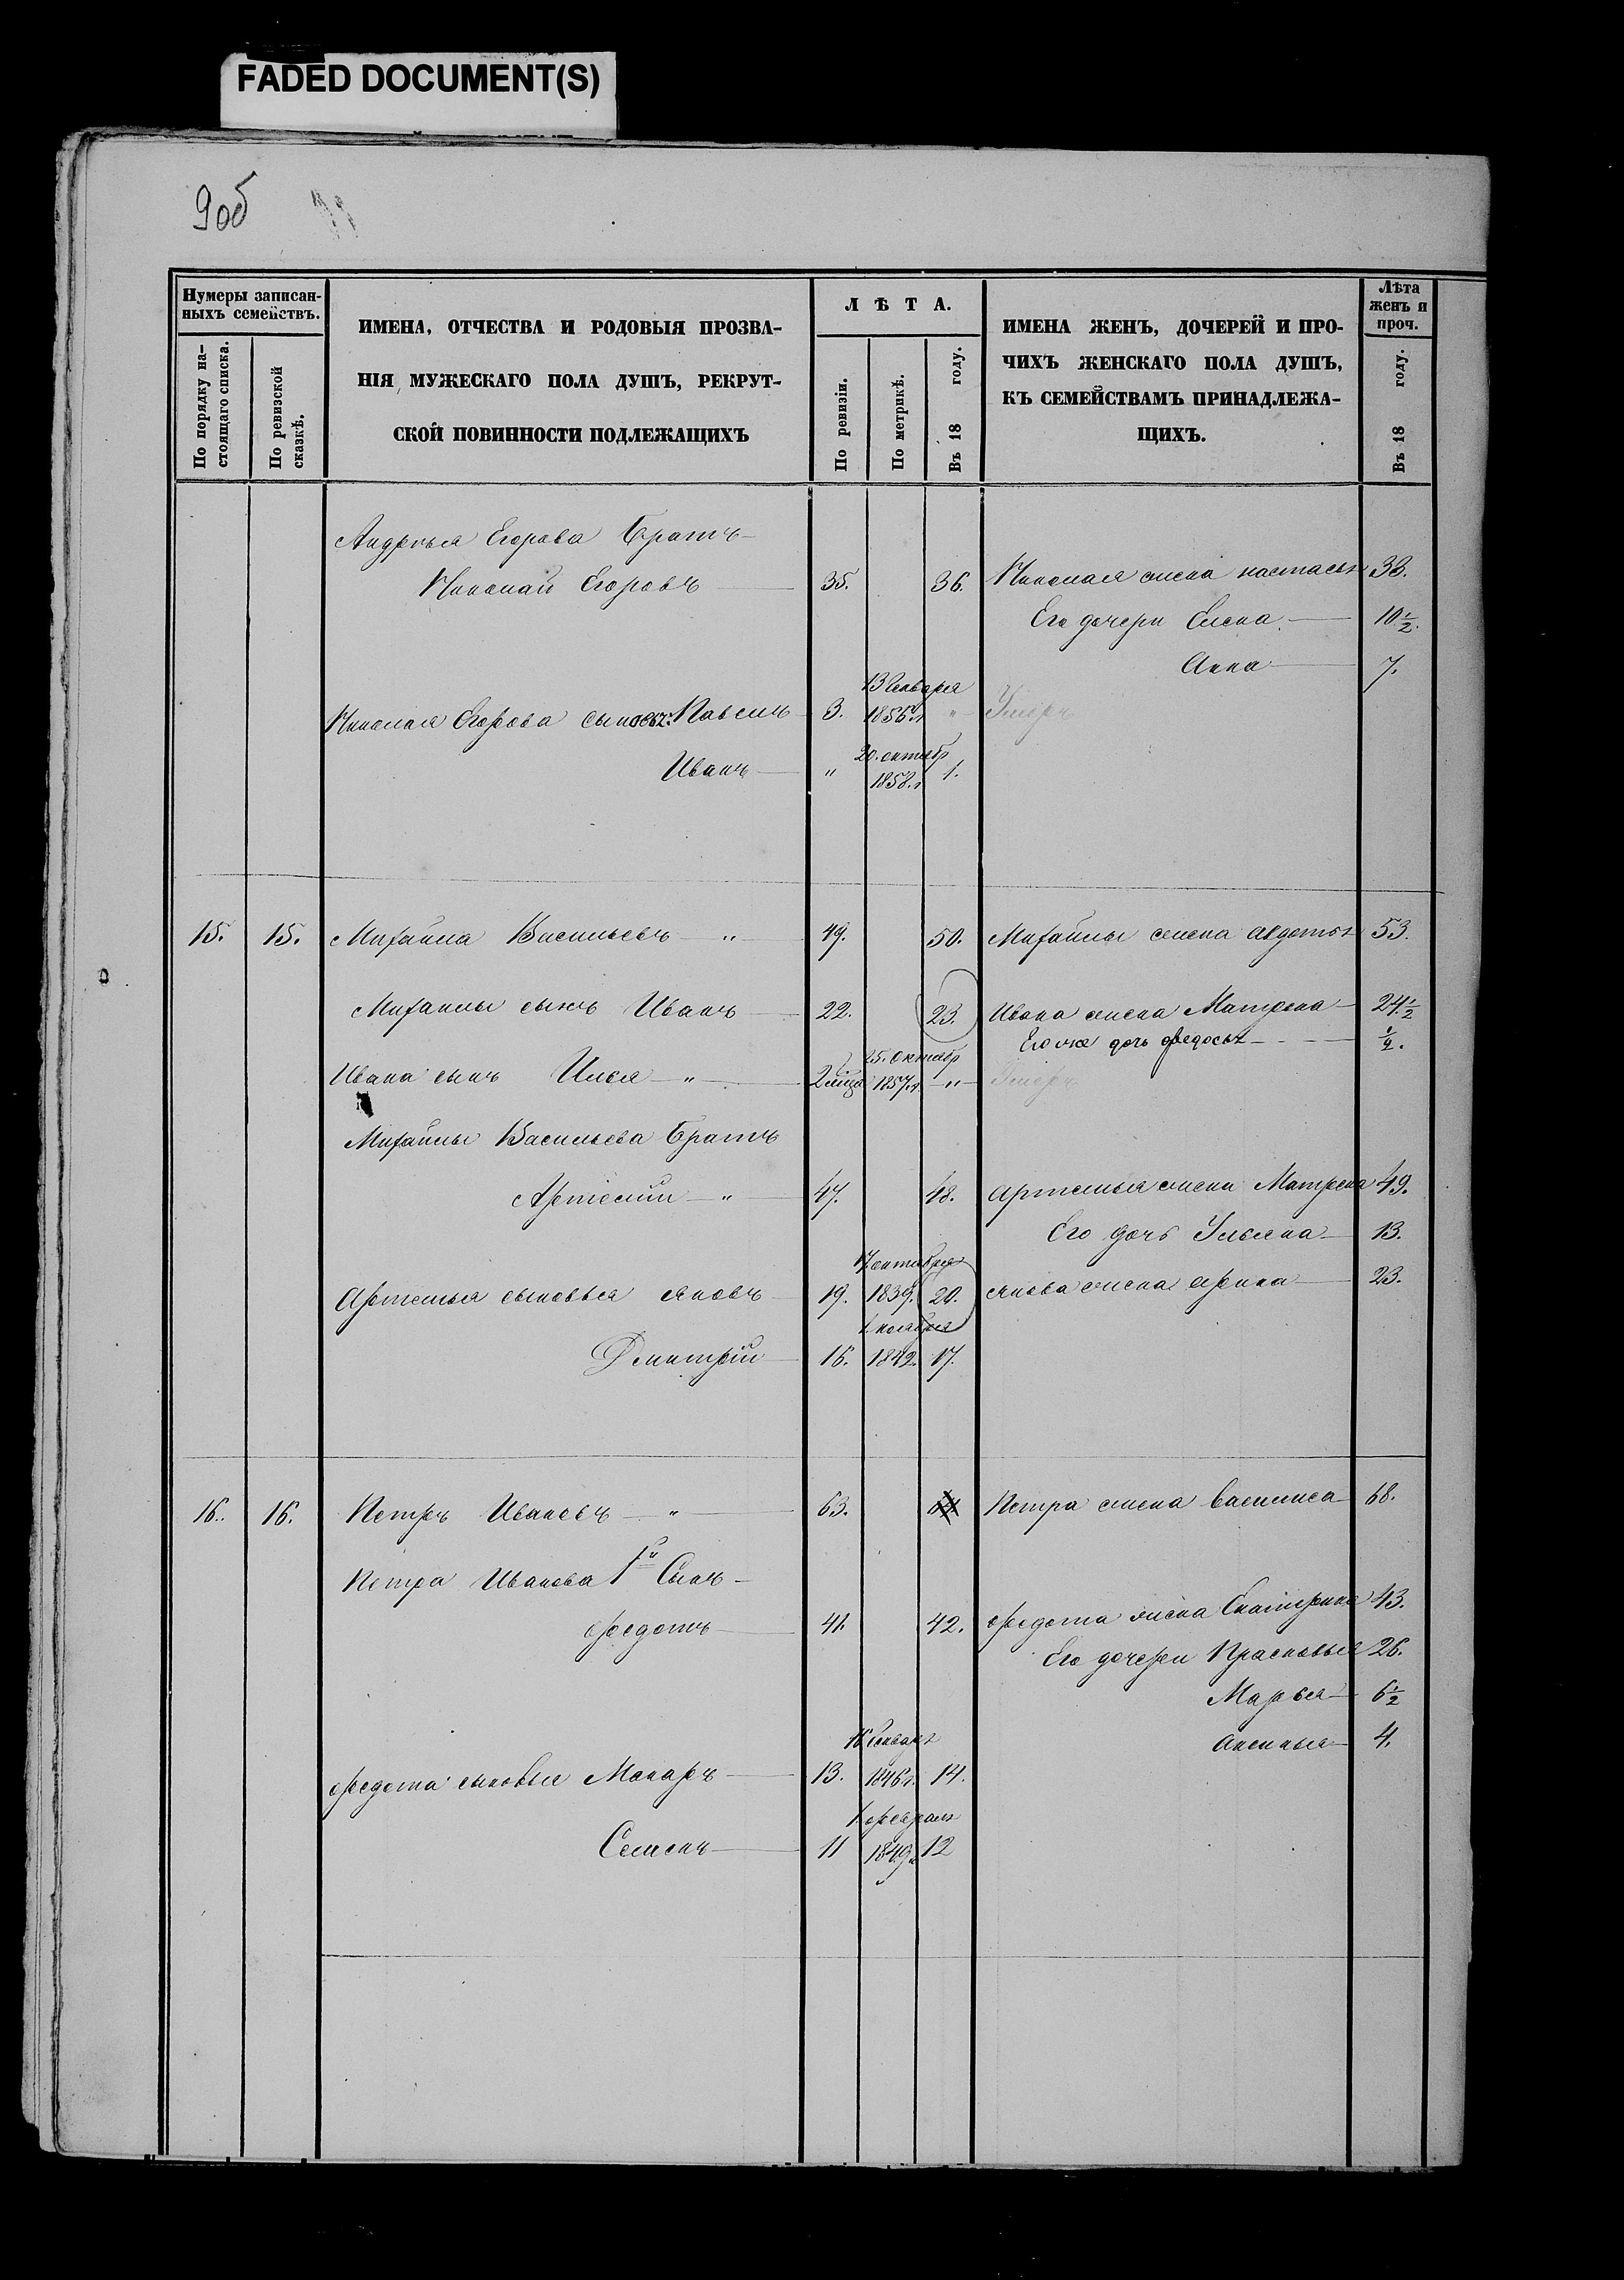 FADED DOCUMENT(S)
9об
Нумеры записан-
ныхъ семействъ.
По порядку на-
стоящаго списка.
По ревизской
сказкѣ.
ИМЕНА, ОТЧЕСТВА И РОДОВЫЯ ПРОЗВА-
НІЯ МУЖЕСКАГО ПОЛА ДУШЪ, РЕКРУТ-
СКОЙ ПОВИННОСТИ ПОДЛЕЖАЩИХЪ
ЛѢТА.
По ревизіи.
По метрикѣ.
Въ 18 году.
ИМЕНА ЖЕНЪ, ДОЧЕРЕЙ И ПРО-
ЧИХЪ ЖЕНСКАГО ПОЛА ДУШЪ,
КЪ СЕМЕЙСТВАМЪ ПРИНАДЛЕЖА-
ЩИХЪ.
Лѣта
женъ и
проч.
Въ 18 году.
Андрея Егорова Братъ
Николай Егоровъ 35. 36. Николая жена настасья 38.
Его дочери Елена 10 1/2.
Анна 7.
13 Генваря
Николая Егорова сыновья: Павелъ 3. 1856.г " Умеръ
20. октябр
Иванъ " 1858.г 1.
15. 15. Михайла Васильевъ " 49. 50. Михайлы жена авдотья 53.
Михайлы сынъ Иванъ 22. 23. Ивана жена Матрена 24 1/2
Его же дочь федосья 1/2.
25. Октябр
Ивана сынъ Илья " 2 мца 1857.г " Умеръ
Михайлы Васильева Братъ
Артемій " 47. 48. Артемья жена Матрена 49.
Его дочь Ульяна 13.
17 октября
Артемья сыновья Яковъ 19. 1839. 20. Якова жена арина 23.
1 ноября
Дмитрій 16. 1842. 17.
16. 16. Петръ Ивановъ " 63. 64 Петра жена Василиса 68.
Петра Иванова 1й Сынъ
Федотъ 41. 42. Федота жена Екатерина 43.
Его дочери Прасковья 26.
Марья 6 1/2
Аксинья 4.
16 Генваря
Федота сыновья Макаръ 13. 1846г. 14.
1 февраля
Семенъ 11 1849г. 12